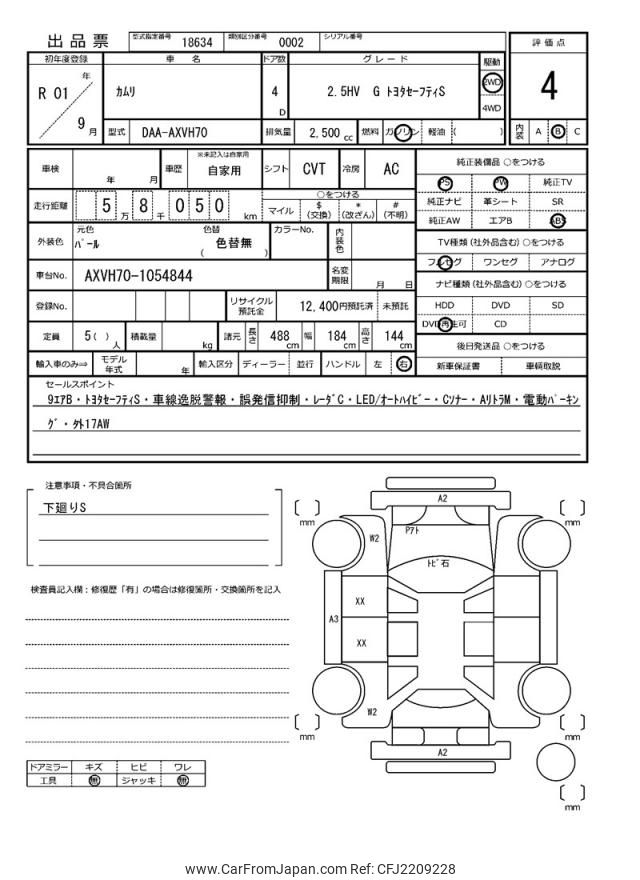 出品票 型式指定番号 18634 類別区分番号 0002 シリアル番号
評価点
4
初年度登録 車名 ドア数 グレード 駆動
R 01 年 9 月
カムリ 4 D 2.5HV G トヨタセーフティS 2WD
4WD
型式 DAA-AXVH70 排気量 2,500 cc 燃料 ガソリン 軽油 ( )
内装 A B C
車検 年 月 車歴 ※未記入は自家用 自家用 シフト CVT 冷房 AC
走行距離 5 万 8 千 0 5 0 km
○をつける
マイル $ (交換) * (改ざん) # (不明)
外装色 元色 パール 色替 色替無 ( ) カラーNo. 内装色
車台No. AXVH70-1054844 名変期限 月 日
登録No. リサイクル預託金 12,400円預託済 未預託
定員 5( )人 積載量 kg 諸元 長さ 488 cm 幅 184 cm 高さ 144 cm
輸入車のみ⇒ モデル年式 年 輸入区分 ディーラー 並行 ハンドル 左 右
純正装備品 ○をつける
PS PW 純正TV
純正ナビ 革シート SR
純正AW エアB ABS
TV種類 (社外品含む) ○をつける
フルセグ ワンセグ アナログ
ナビ種類 (社外品含む) ○をつける
HDD DVD SD
DVD再生可 CD
後日発送品 ○をつける
新車保証書 車輌取説
セールスポイント
9エアB・トヨタセーフティS・車線逸脱警報・誤発信抑制・レーダC・LED/オートハイビー・Cソナー・AリトラM・電動パーキン
グ・外17AW
注意事項・不具合箇所
下廻りS
検査員記入欄：修復歴「有」の場合は修復箇所・交換箇所を記入
ドアミラー キズ ヒビ ワレ
工具 無 ジャッキ 無
A2
mm
mm
W2
Pアト
トビ石
XX
A3
XX
W2
mm
mm
A2
mm
www.CarFromJapan.com Ref: CFJ2209228